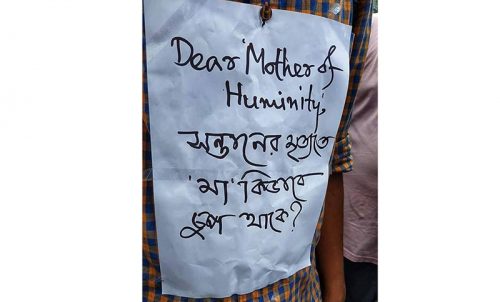 Dear 'Mother of
Huminity',
সন্তানের মৃত্যুতে
'মা' কিভাবে
চুপ থাকে?